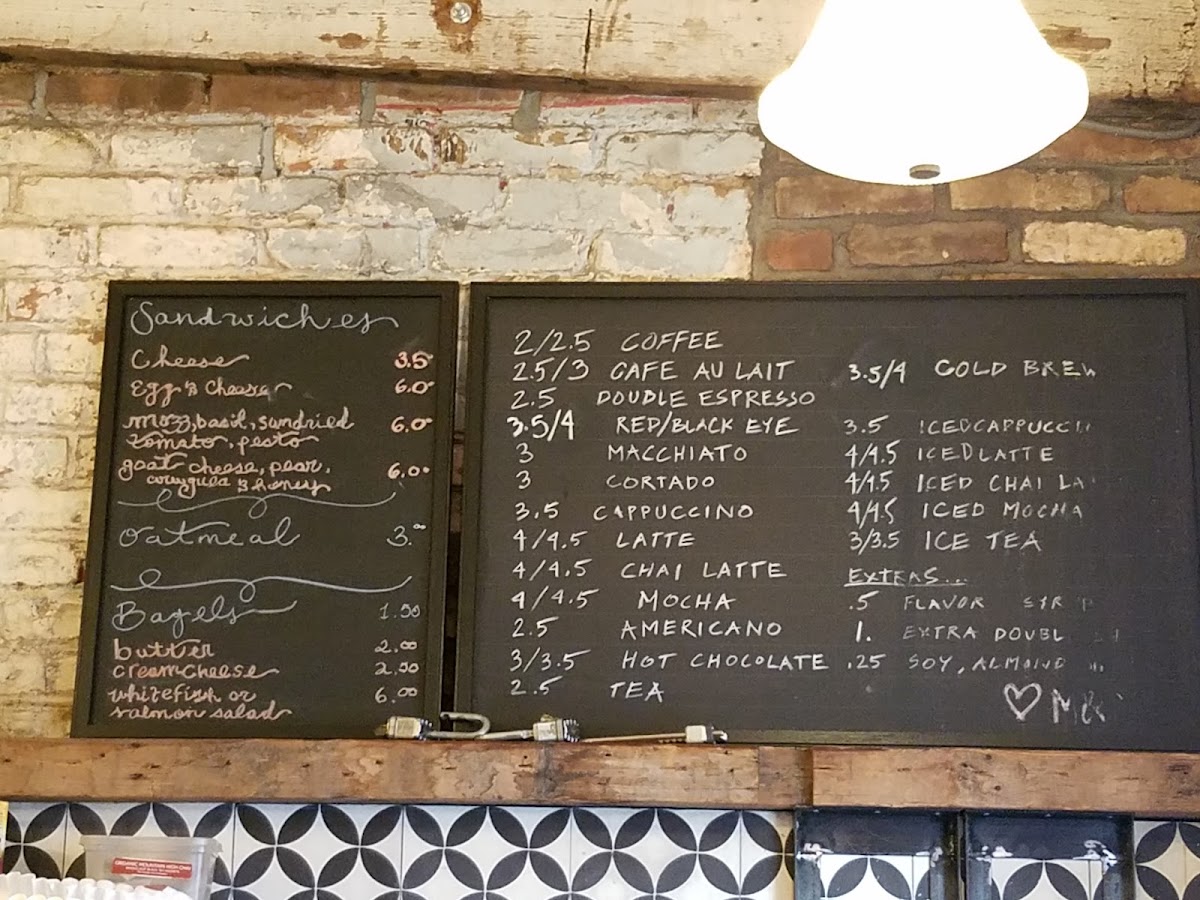 Sandwiches
Cheese 3.50
Egg & Cheese 6.00
mozz, basil, sundried 6.00
tomato, pesto
goat cheese, pear, 6.00
arugula & honey
Oatmeal 3.00
Bagels 1.50
butter 2.00
cream cheese 2.50
whitefish or 6.00
salmon salad
2/2.5 COFFEE
2.5/3 CAFE AU LAIT
2.5 DOUBLE ESPRESSO
3.5/4 RED/BLACK EYE
3 MACCHIATO
3 CORTADO
3.5 CAPPUCCINO
4/4.5 LATTE
4/4.5 CHAI LATTE
4/4.5 MOCHA
2.5 AMERICANO
3/3.5 HOT CHOCOLATE
2.5 TEA
3.5/4 COLD BREW
3.5 ICED CAPPUCCI
4/4.5 ICED LATTE
4/4.5 ICED CHAI LA
4/4.5 ICED MOCHA
3/3.5 ICE TEA
EXTRAS...
.5 FLAVOR
1. EXTRA DOUBL
.25 SOY, ALMOND